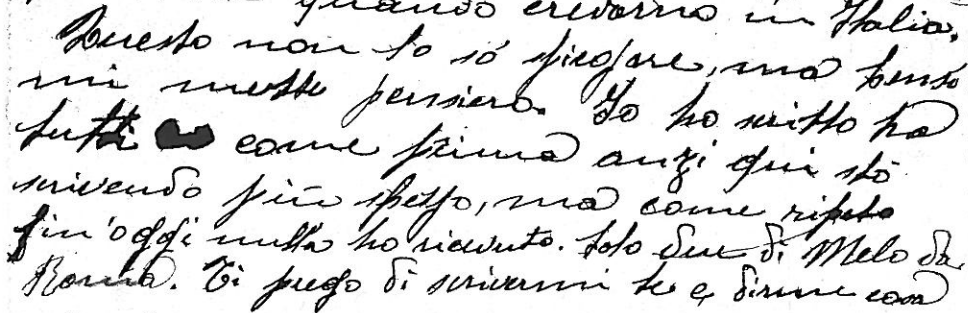 quando eravamo in Italia.
Questo non lo só spiegare, ma penso
mi mette pensiero. Io ho scritto ha
tutti come prima anzi qui stò
scrivendo più spesso, ma come ripeto
fin'oggi nulla ho ricevuto. Solo due di Melo da
Roma. Ti prego di scrivermi te e dirme cosa